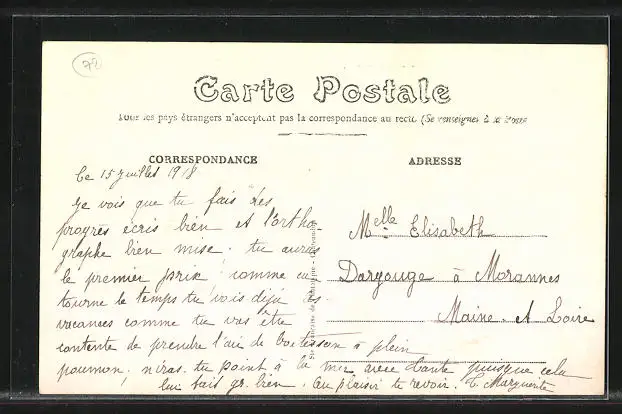 72
Carte Postale
Tous les pays étrangers n'acceptent pas la correspondance au recto (Se renseigner à la Poste
CORRESPONDANCE
Le 15 juillet 1918
Je vois que tu fais des
progrès écris bien et l'ortho-
graphe bien mise. tu auras
le premier prix, comme ça
tourne le temps tu vois déjà les
vacances comme tu vas être
contente de prendre l'air de à plein
poumon, niras. tu point à la mer avec tante puisque cela
lui fait gr. bien. Au plaisir te revoir. Marguerite
ADRESSE
Melle Elisabeth
Dargouge à Morannes
Maine et Loire